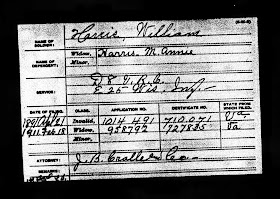 Harris, William
NAME OF SOLDIER:
NAME OF DEPENDENT:
Widow, Harris M. Annie
Minor,
SERVICE:
D 8 U.S.
E 25 Wis. Inf.
DATE OF FILING. CLASS. APPLICATION NO. CERTIFICATE NO. STATE FROM WHICH FILED.
1891 Apl 21 Invalid, 1014491 710.071 Va
1911 Feb 18 Widow, 958792 727835 Va
Minor,
ATTORNEY: J. B. Cralle & Co
REMARKS: